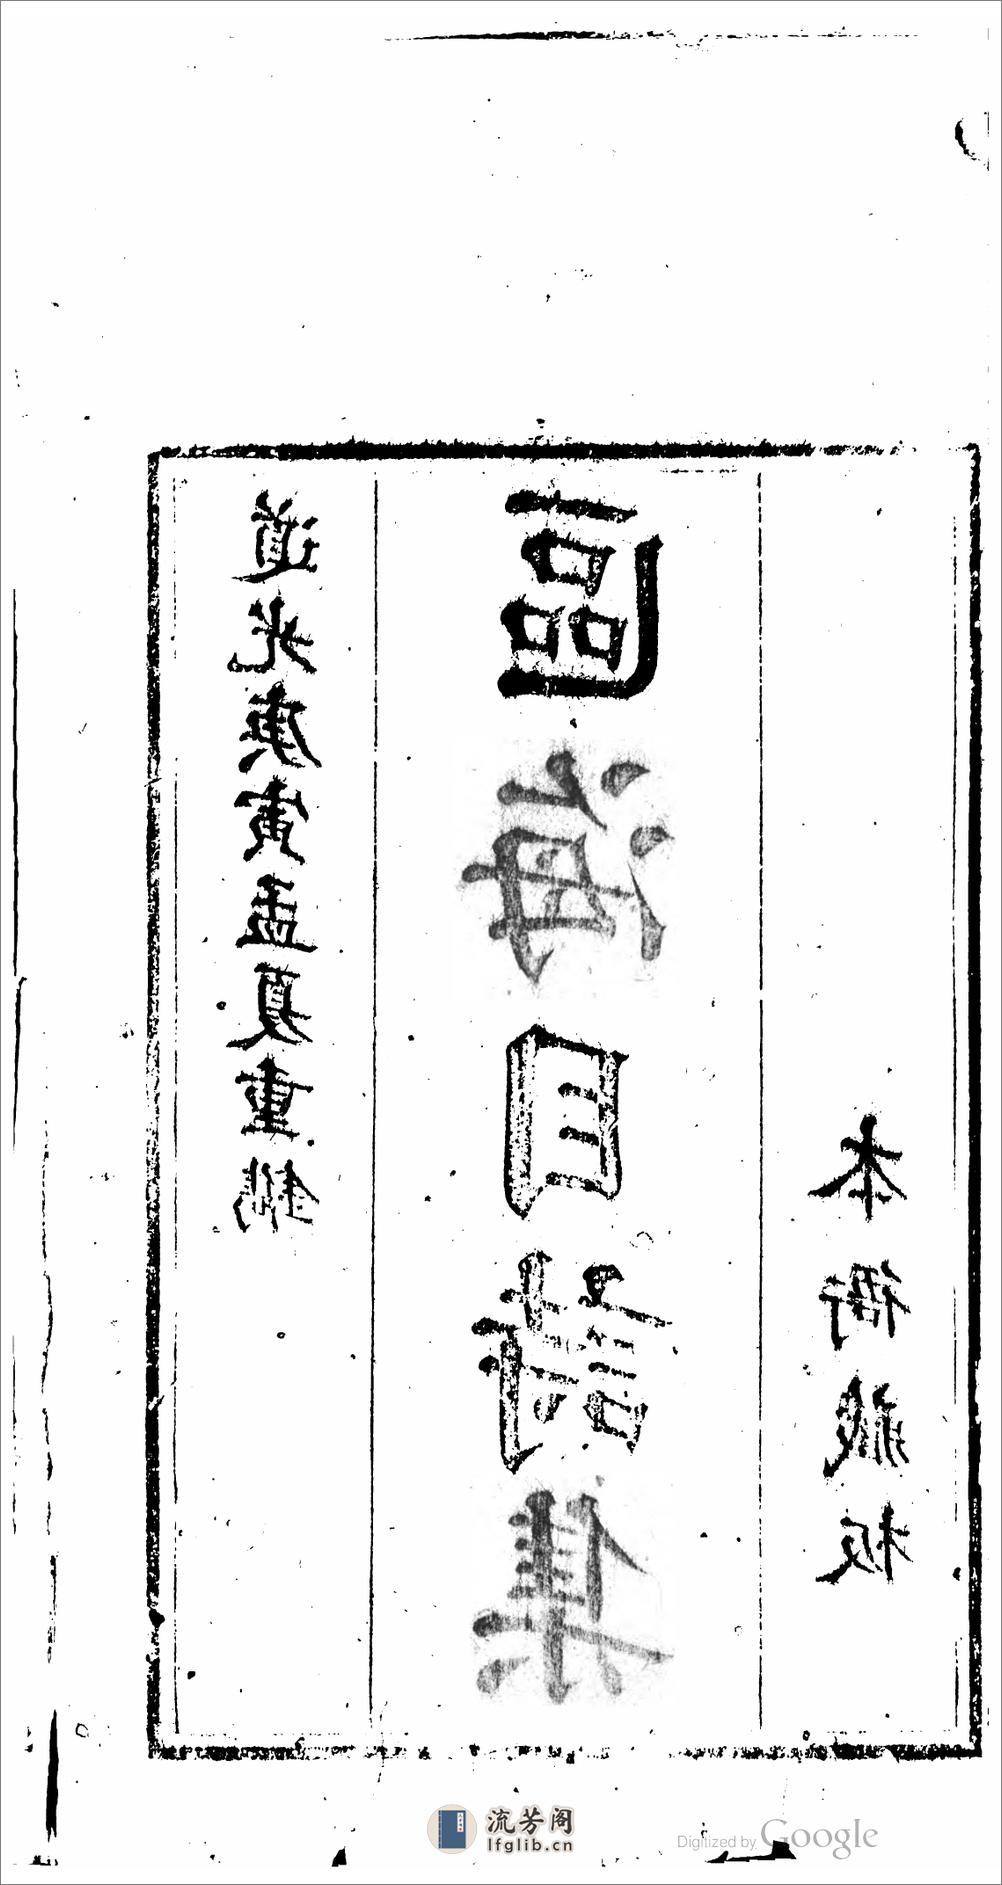 道光庚寅孟夏重鐫
區海目詩集
本衙藏板
流芳阁
lfglib.cn
Digitized by Google